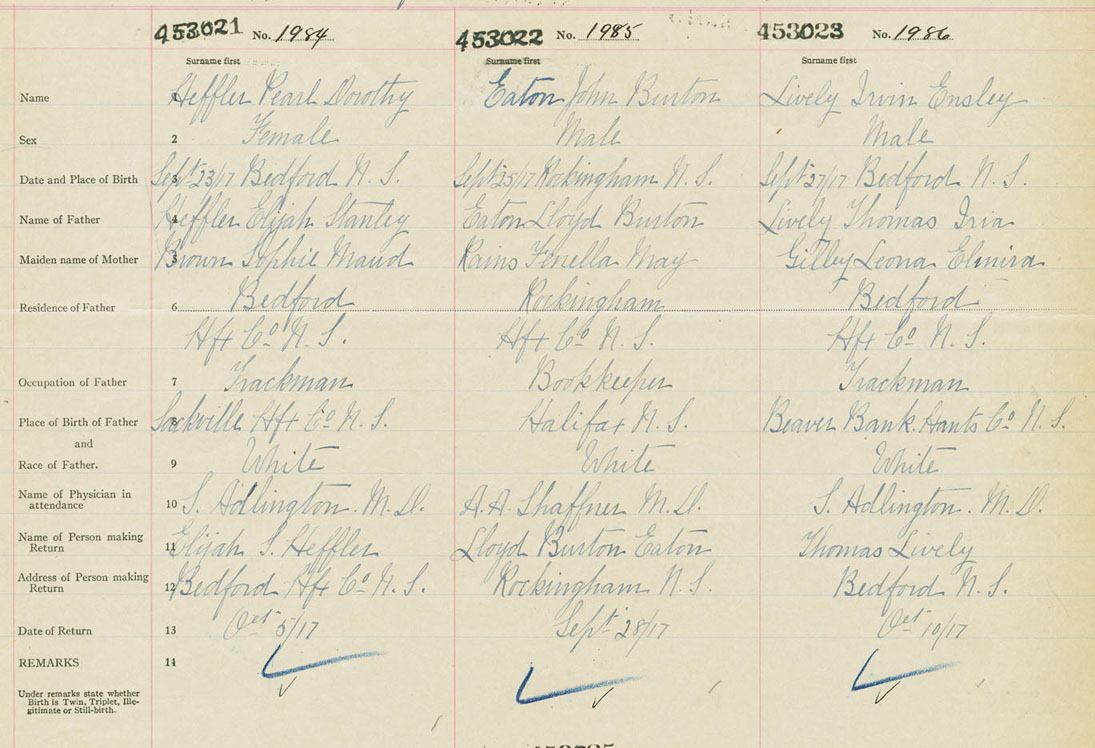 453021 No. 1984 453022 No. 1985 453023 No. 1986
Surname first Surname first Surname first
Name 1 Heffler Pearl Dorothy Eaton John Burton Lively Irvin Ensley
Sex 2 Female Male Male
Date and Place of Birth 3 Sept 23/17 Bedford N. S. Sept 25/17 Rockingham N. S. Sept 27/17 Bedford N. S.
Name of Father 4 Heffler Elijah Stanley Eaton Lloyd Burton Lively Thomas Iria
Maiden name of Mother 5 Brown Sophie Maud Rains Fenella May Gilby Leona Elmira
Residence of Father 6 Bedford Rockingham Bedford
Hfx Co N. S. Hfx Co N. S. Hfx Co N. S.
Occupation of Father 7 Trackman Bookkeeper Trackman
Place of Birth of Father 8 Sackville Hfx Co N. S. Halifax N. S. Beaver Bank. Hants Co N. S.
and
Race of Father. 9 White White White
Name of Physician in
attendance 10 S. Adlington. M. D. A. A. Shaffner M. D. S. Adlington. M. D.
Name of Person making
Return 11 Elijah S. Heffler Lloyd Burton Eaton Thomas Lively
Address of Person making
Return 12 Bedford Hfx Co N. S. Rockingham N. S. Bedford N. S.
Date of Return 13 Oct 5/17 Sept 28/17 Oct 10/17
REMARKS 14
Under remarks state whether
Birth is Twin, Triplet, Ille-
gitimate or Still-birth.